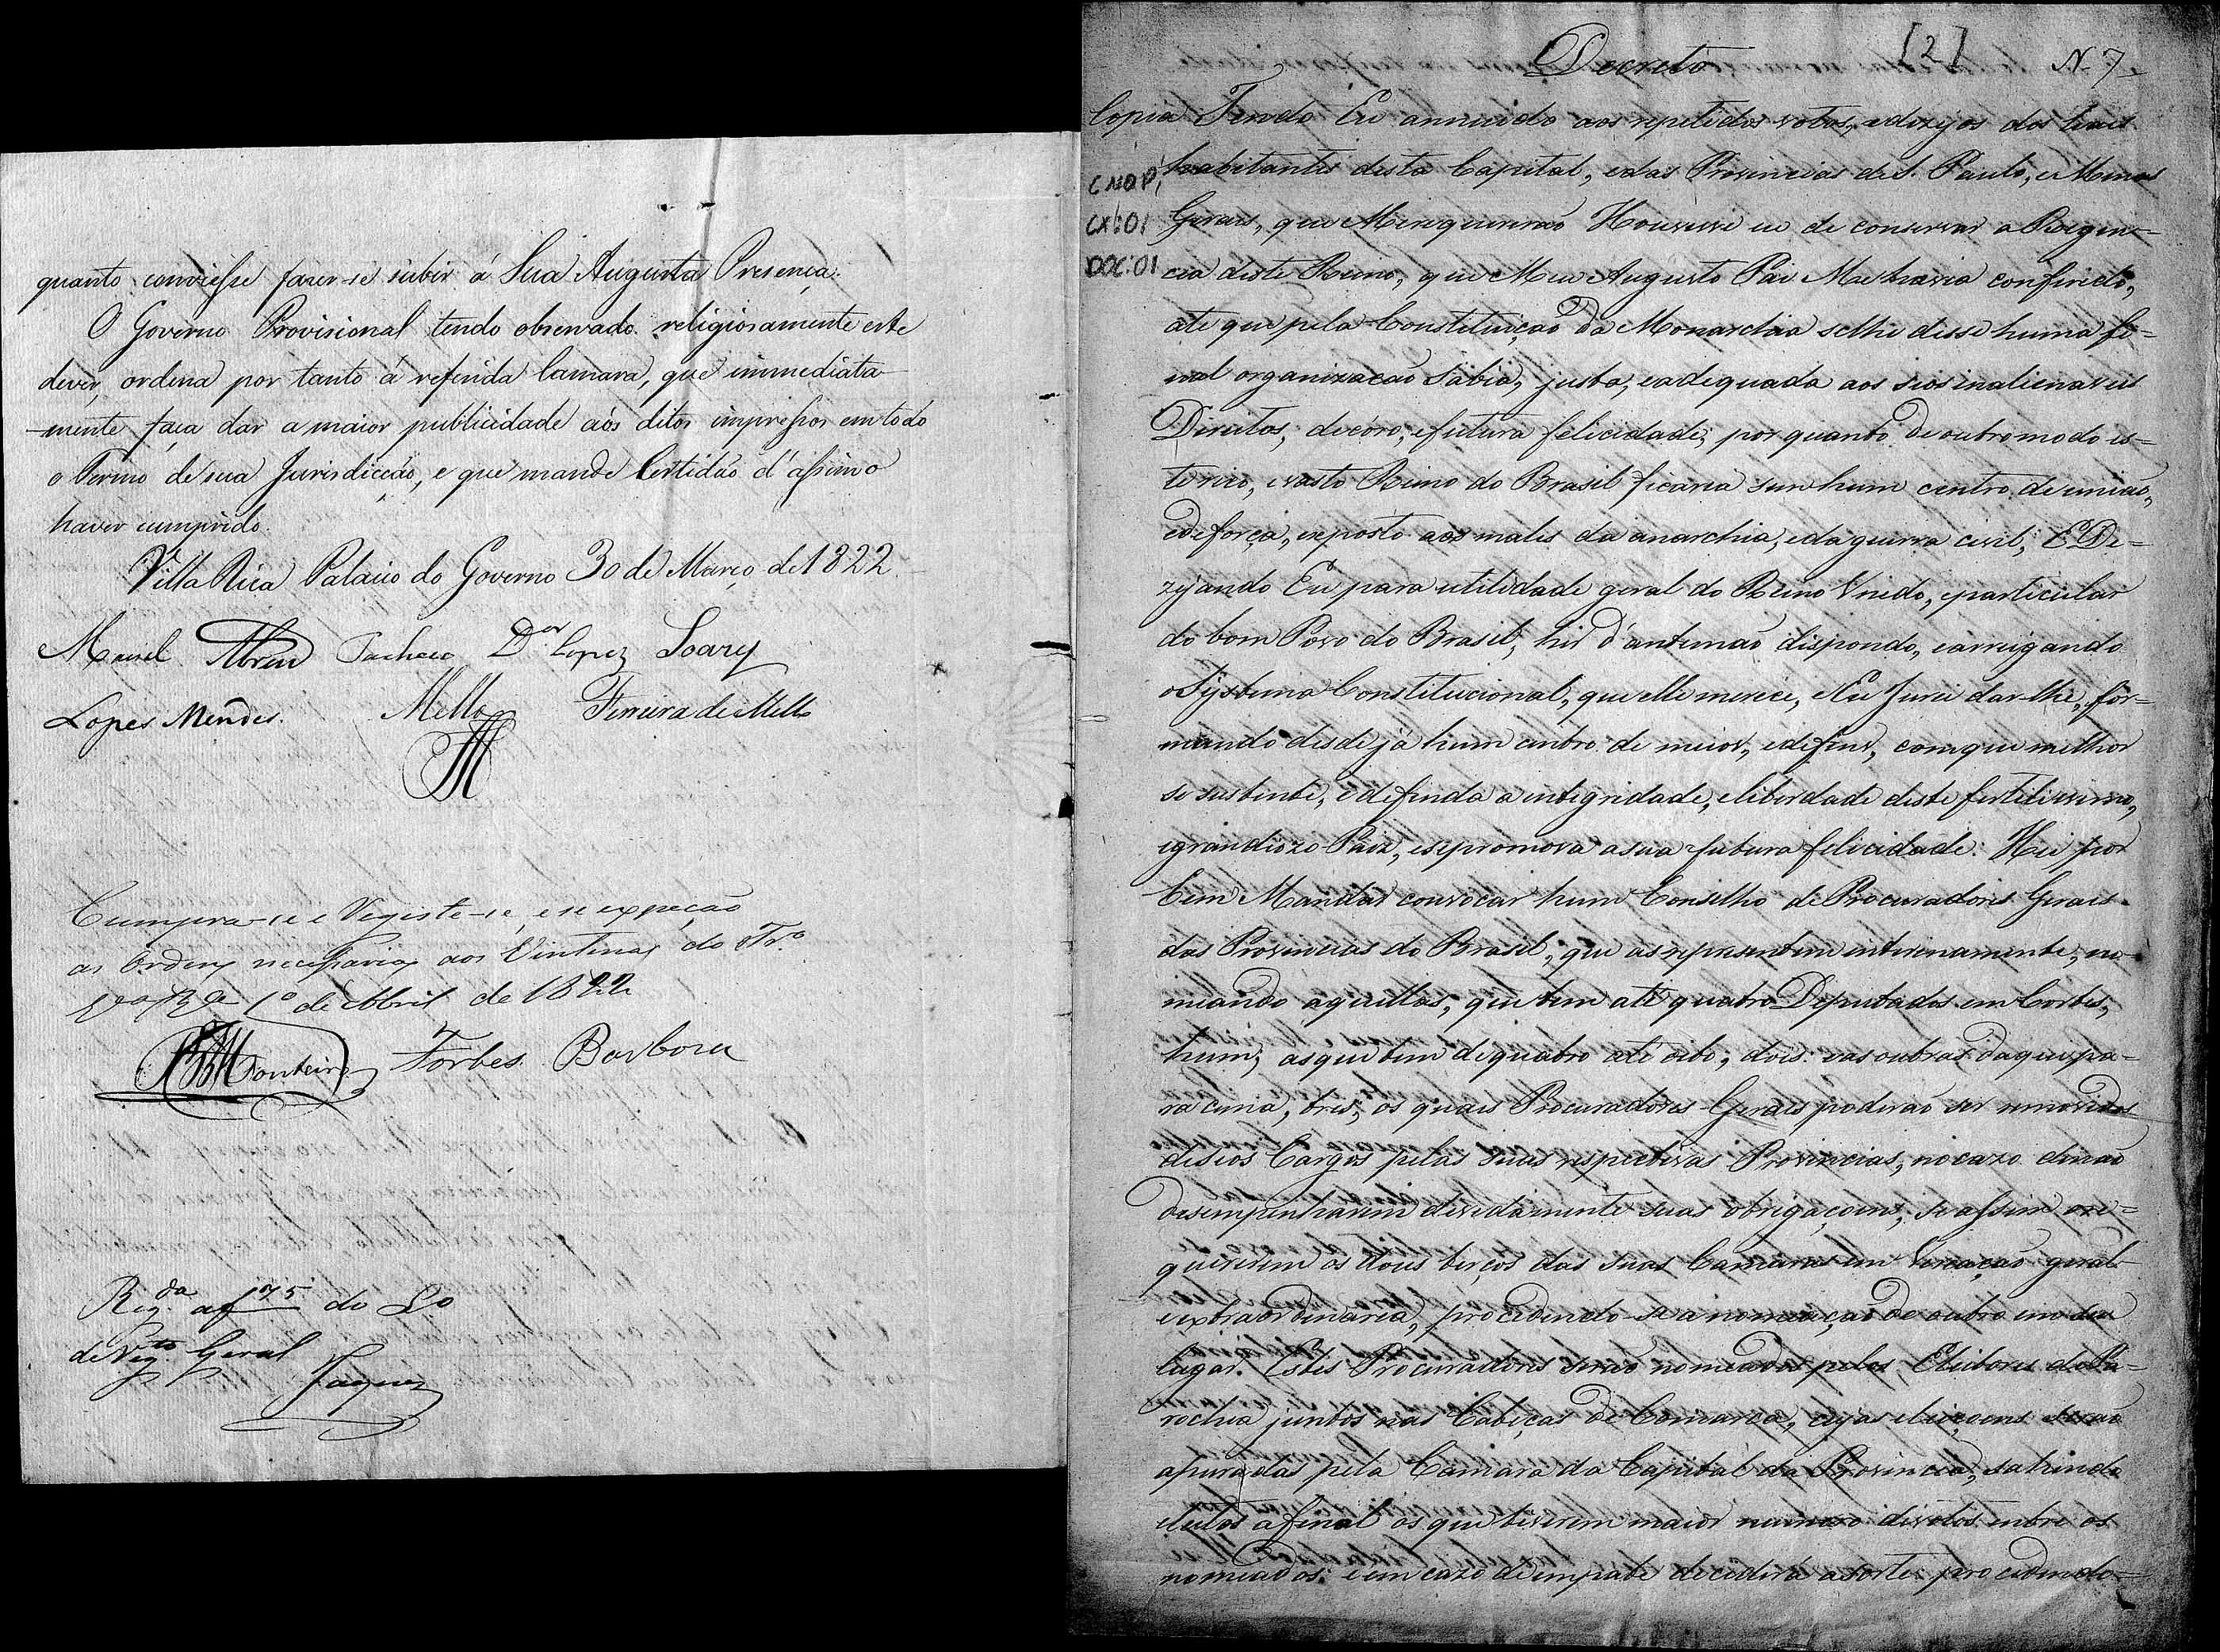 quanto conviesse fazer-se subir á Sua Augusta Presença.
O Governo Provisional tendo observado religiosamente este
dever, ordena por tanto á referida Camara, que immediata
-mente faça dar a maior publicidade aos ditos impressos em todo
o Termo de sua Jurisdicção, e que mande Certidão d'assim o
haver cumprido.
Villa Rica Palacio do Governo 30 de Março de 1822
Manoel Abreu Pacheco Dor Lopez Soares
Lopes Mendes. Mello Ferreira de Mello
Cumpra-se e Registe-se, e se expeção
as Ordens necessarias aos Vintenas do Tro
1º de Abril de 1822
Monteiro Forbes Barbosa
Regda a f 175 do Lo
de Regto Geral
Jaques
[2]
Decreto N. 7
Copia Tendo Eu annuido aos repetidos votos, e dezejos dos leais
CNOP, habitantes desta Capital, e das Provincias de S. Paulo, e Minas
CX:01 Geraes, que Me requererão Houvesse eu de conservar a Regen=
DOC:01 cia deste Reino, que Meu Augusto Pai Me havia conferido,
até que pela Constituição da Monarchia se lhe desse huma fi=
nal organização sabia, justa, e adequada aos seos inalienaveis
Direitos, decóro, e futura felicidade; por quanto de outro modo es=
te rico, e vasto Reino do Brasil ficaria sem hum centro de união,
e de força, exposto aos males da anarchia, e da guerra civil; E De=
zejando Eu para utilidade geral do Reino Unido, e particular
do bom Povo do Brasil, hir d'antemão dispondo, e arreigando
o Systema Constitucional, que elle merece, e Eu Jurei dar-lhe, for=
mando desde já hum centro de meios, e de fins, com que melhor
se sustente, e defenda a integridade, e liberdade deste fertilissimo,
e grandiozo Paiz, e se promova a sua futura felicidade: Hei por
bem Mandar convocar hum Conselho de Procuradores Geraes
das Provincias do Brasil, que as representem interinamente, no-
meando aquellas, que tem até quatro Deputados em Cortes,
hum; as que tem de quatro até oito, dois: e as outras daqui pa=
ra cima, tres; os quais Procuradores Geraes poderão ser removidos
de seos Cargos pelas suas respectivas Provincias, no cazo de não
desempenharem devidamente suas obrigaçoens, se assim o re=
quererem os dous terços das suas Camaras em Vereação geral
e extraordinaria, procedendo-se a nomeação de outro em seu
lugar. Estes Procuradores serão nomeados pelos Eleitores de Pa=
rochia juntos nas Cabeças de Comarca, cujas eleiçoens serão
apuradas pela Camara da Capital da Provincia, sahindo
eleitos afinal os que tiverem maior numero de votos entre os
nomeados: e em cazo de empate decidirá a sorte: procedendo=